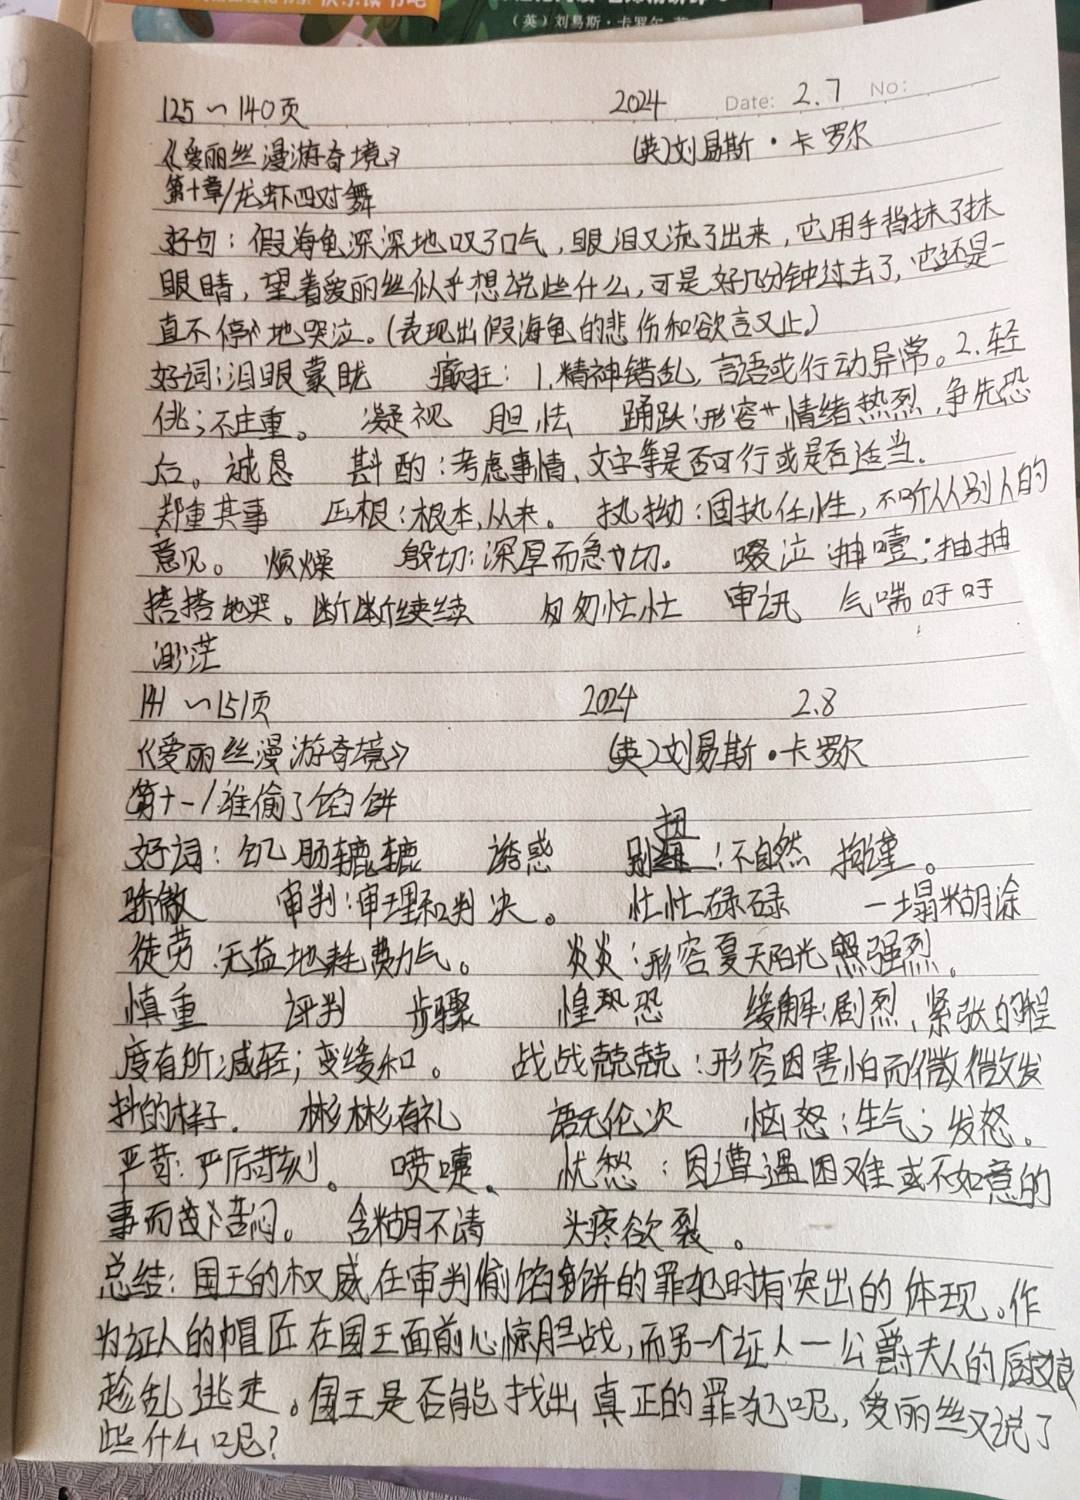 (英)刘易斯·卡罗尔
125~140页 2024 Date: 2.7 No:
《爱丽丝漫游奇境》 (英)刘易斯·卡罗尔
第十章/龙虾四对舞
好句：假海龟深深地叹了口气，眼泪又流了出来，它用手背抹了抹
眼睛，望着爱丽丝似乎想说些什么，可是好几分钟过去了，它还是一
直不停地哭泣。(表现出假海龟的悲伤和欲言又止)
好词：泪眼蒙眬 癫狂：1.精神错乱，言语或行动异常。2.轻
佻；不庄重。 凝视 胆怯 踊跃：形容情绪热烈，争先恐
后。 诚恳 斟酌：考虑事情、文字等是否可行或是否适当.
郑重其事 压根：根本，从来。 执拗：固执任性，不听从别人的
意见。 烦燥 殷切：深厚而急切。 啜泣：抽噎；抽抽
搭搭地哭。 断断续续 匆匆忙忙 审讯 气喘吁吁
渺茫
141~151页 2024 2.8
《爱丽丝漫游奇境》 (英)刘易斯·卡罗尔
第十一/谁偷了馅饼
好词：饥肠辘辘 诱惑 别扭：不自然 拘谨。
骄傲 审判：审理和判决。 忙忙碌碌 一塌糊涂
徒劳：无益地耗费力气。 炎炎：形容夏天阳光强烈。
慎重 评判 步骤 惶恐 缓解：剧烈、紧张的程
度有所减轻；变缓和。 战战兢兢：形容因害怕而微微发
抖的样子. 彬彬有礼 语无伦次 恼怒：生气；发怒。
严苛：严厉苛刻。 喷嚏、 忧愁：因遭遇困难或不如意的
事而苦闷。 含糊不清 头疼欲裂。
总结：国王的权威在审判偷馅饼的罪犯时有突出的体现。作
为证人的帽匠在国王面前心惊胆战，而另一个证人—公爵夫人的厨娘
趁乱逃走。国王是否能找出真正的罪犯呢，爱丽丝又说了
些什么呢？